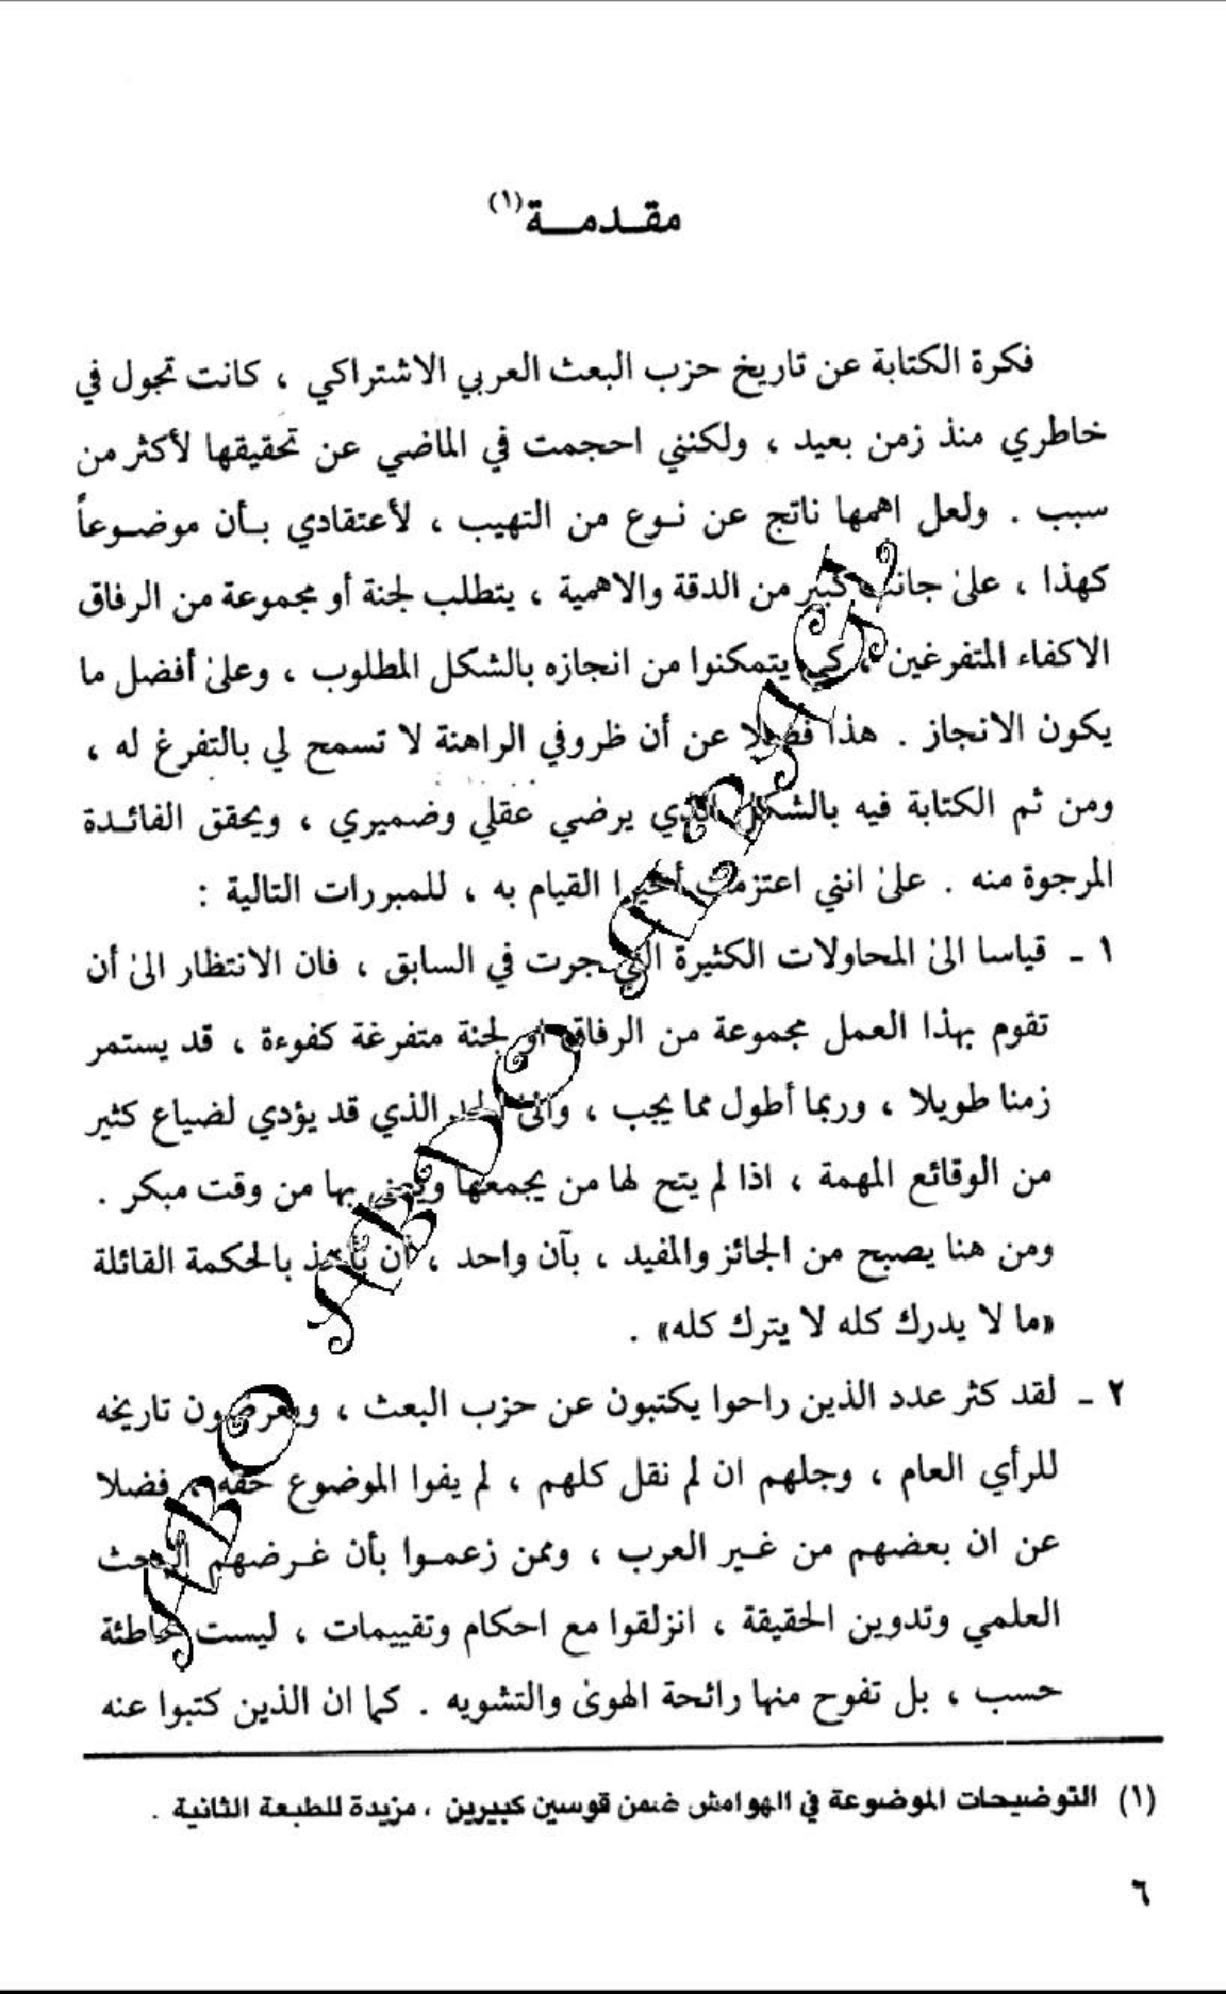 مقدمة (١)
فكرة الكتابة عن تاريخ حزب البعث العربي الاشتراكي ، كانت تجول في
خاطري منذ زمن بعيد ، ولكنني احجمت في الماضي عن تحقيقها لأكثر من
سبب . ولعل اهمها ناتج عن نوع من التهيب ، لأعتقادي بأن موضوعاً
كهذا ، على جانب كبير من الدقة والاهمية ، يتطلب لجنة أو مجموعة من الرفاق
الاكفاء المتفرغين ، كي يتمكنوا من انجازه بالشكل المطلوب ، وعلى أفضل ما
يكون الانجاز . هذا فضلا عن أن ظروفي الراهنة لا تسمح لي بالتفرغ له ،
ومن ثم الكتابة فيه بالشكل الذي يرضي عقلي وضميري ، ويحقق الفائدة
المرجوة منه . على انني اعتزمت أخيرا القيام به ، للمبررات التالية :
١ ـ قياسا الى المحاولات الكثيرة التي جرت في السابق ، فان الانتظار الى أن
تقوم بهذا العمل مجموعة من الرفاق او لجنة متفرغة كفوءة ، قد يستمر
زمنا طويلا ، وربما أطول مما يجب ، والى الحد الذي قد يؤدي لضياع كثير
من الوقائع المهمة ، اذا لم يتح لها من يجمعها ويعنى بها من وقت مبكر .
ومن هنا يصبح من الجائز والمفيد ، بآن واحد ، أن نأخذ بالحكمة القائلة
«ما لا يدرك كله لا يترك كله» .
٢ ـ لقد كثر عدد الذين راحوا يكتبون عن حزب البعث ، ويعرضون تاريخه
للرأي العام ، وجلهم ان لم نقل كلهم ، لم يفوا الموضوع حقه ، فضلا
عن ان بعضهم من غير العرب ، وممن زعموا بأن غرضهم البحث
العلمي وتدوين الحقيقة ، انزلقوا مع احكام وتقييمات ، ليست خاطئة
حسب ، بل تفوح منها رائحة الهوى والتشويه . كما ان الذين كتبوا عنه
(١) التوضيحات الموضوعة في الهوامش ضمن قوسين كبيرين ، مزيدة للطبعة الثانية .
٦
ABO ABDO ALBAGL